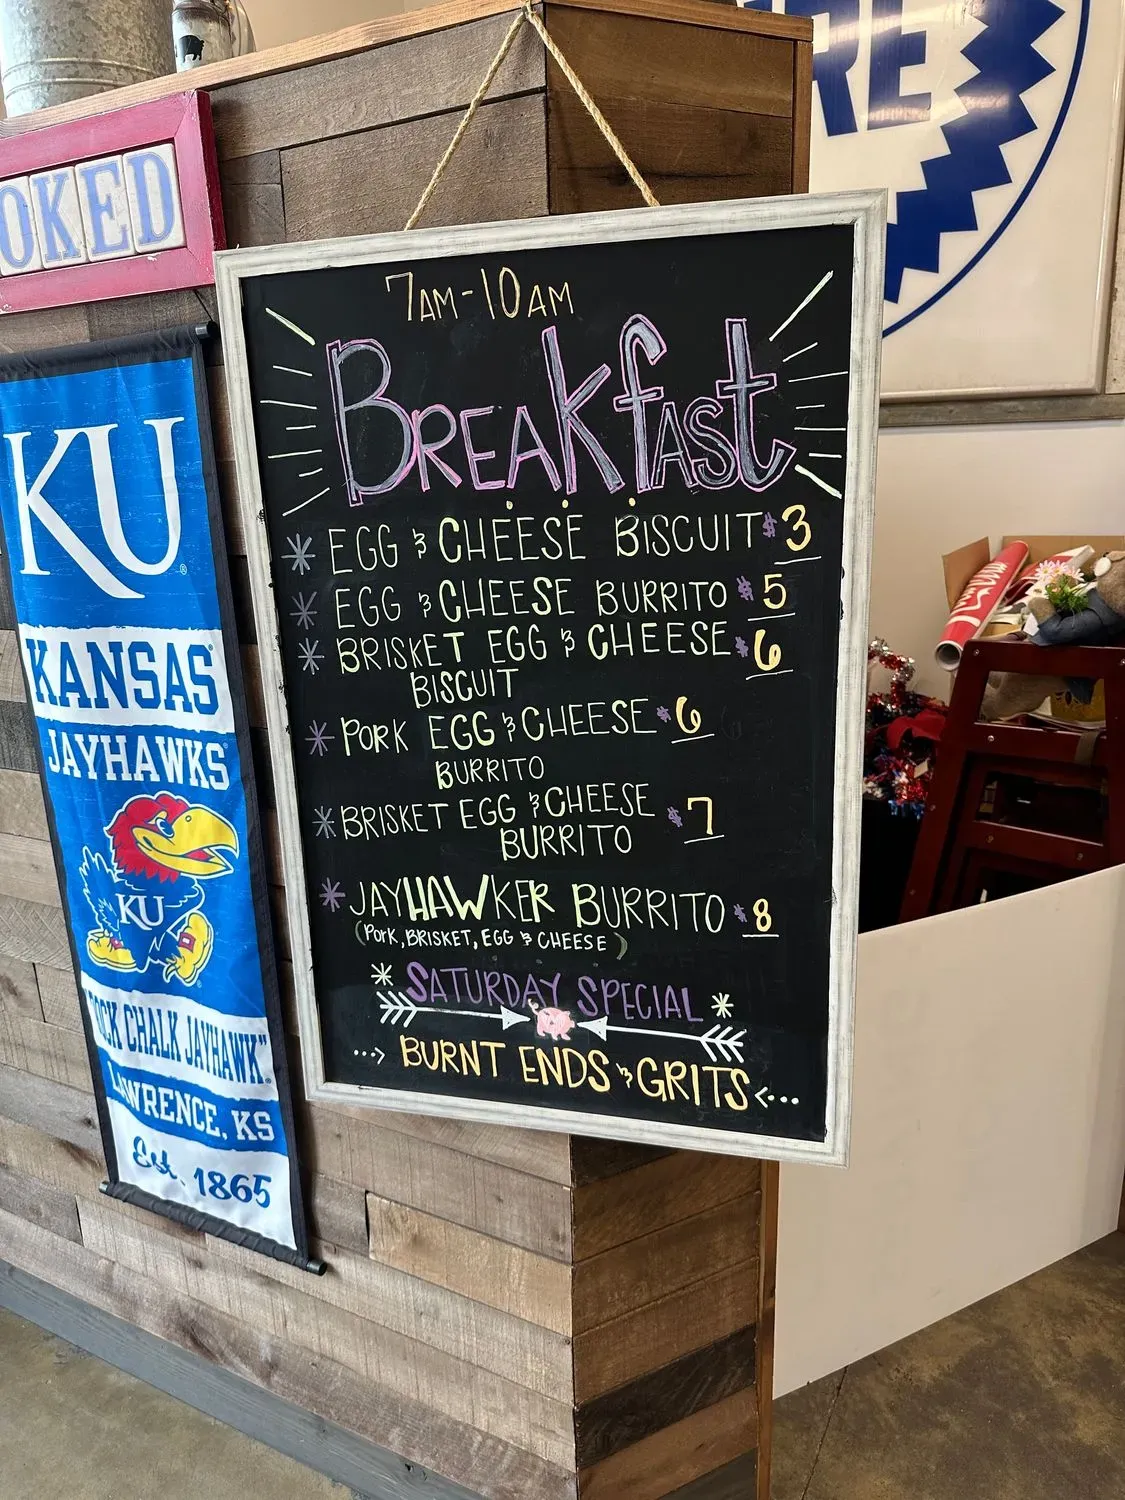 OKED
7AM-10AM
BREAKfAST
* EGG & CHEESE BISCUIT $3
* EGG & CHEESE BURRITO $5
* BRISKET EGG & CHEESE $6
BISCUIT
* PORK EGG & CHEESE $6
BURRITO
* BRISKET EGG & CHEESE $7
BURRITO
* JAYHAWKER BURRITO $8
(PORK, BRISKET, EGG & CHEESE)
* SATURDAY SPECIAL *
BURNT ENDS & GRITS
KU
KANSAS
JAYHAWKS
KU
"ROCK CHALK JAYHAWK"
LAWRENCE, KS
Est. 1865
RE
Coca-Cola